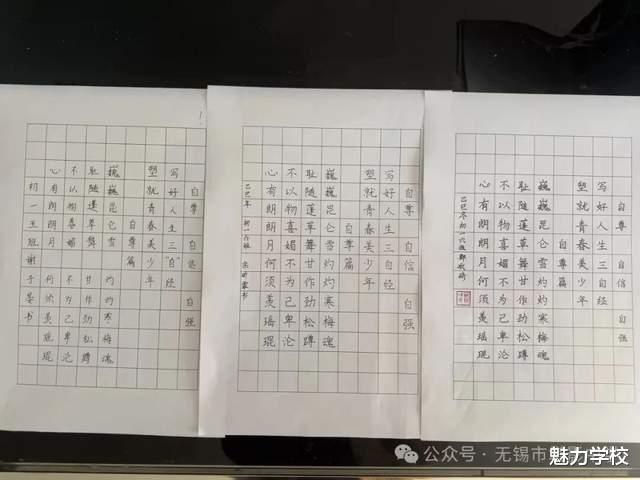 自尊 自信 自强
写好人生三“自”经
塑就青春美少年
自尊篇
巍巍昆仑雪 灼灼寒梅魂
耻随蓬草舞 甘作劲松蹲
不以物喜媚 不为己卑沦
心有朗朗月 何须羡瑶琨
初一五班谢予墨书
自尊 自信 自强
写好人生三自经
塑就青春美少年
自尊篇
巍巍昆仑雪灼灼寒梅魂
耻随蓬草舞甘作劲松蹲
不以物喜媚不为己卑沦
心有朗朗月何须羡瑶琨
乙巳年 初一六班 书
自尊 自信 自强
写好人生三自经
塑就青春美少年
自尊篇
巍巍昆仑雪灼灼寒梅魂
耻随蓬草舞甘作劲松蹲
不以物喜媚不为己卑沦
心有朗朗月何须羡瑶琨
乙巳冬初一六班郑
公众号·无锡市
魅力学校